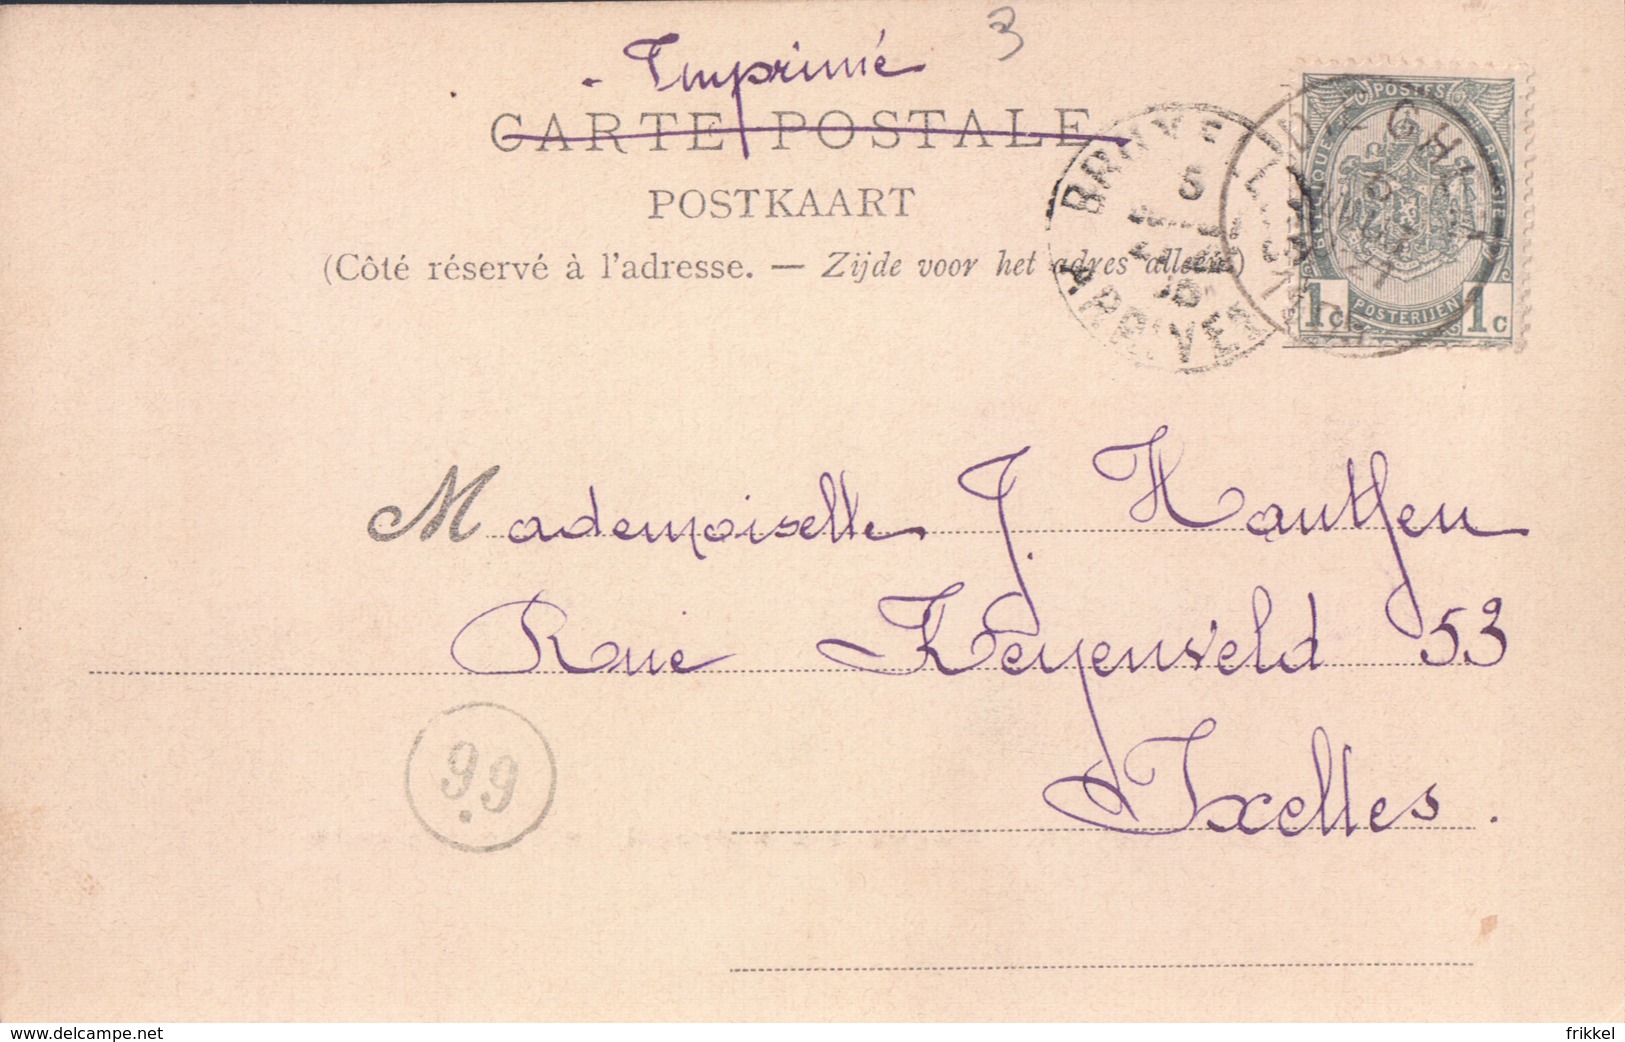 3
Imprimé
CARTE POSTALE
POSTKAART
(Côté réservé à l'adresse. — Zijde voor het adres alleen.)
5
ARRIVEE
POSTES
BELGIQUE
POSTERIJEN
1c 1c
Mademoiselle J. Hautfen
Rue Keyenveld 53
Ixelles.
99
www.delcampe.net
frikkel